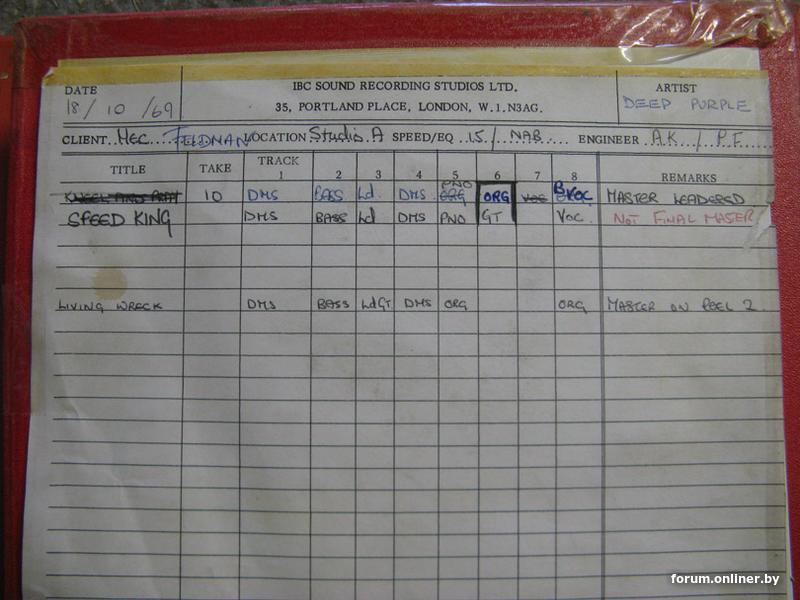 IBC SOUND RECORDING STUDIOS LTD.
35, PORTLAND PLACE, LONDON, W.1.N3AG.
DATE
18/10/69
ARTIST
DEEP PURPLE
CLIENT HEC. FELDMAN LOCATION Studio A SPEED/EQ 15/NAB ENGINEER A.K/P.F
TITLE TAKE TRACK 1 2 3 4 5 6 7 8 REMARKS
KNEEL AND PRAY 10 DMS BASS Ld. DMS PNO ORG ORG VOC B.VOC MASTER LEADERED
SPEED KING DMS BASS Ld DMS PNO GT VOC. NOT FINAL MASTER
LIVING WRECK DMS BASS LdGT DMS ORG ORG MASTER ON REEL 2
forum.onliner.by